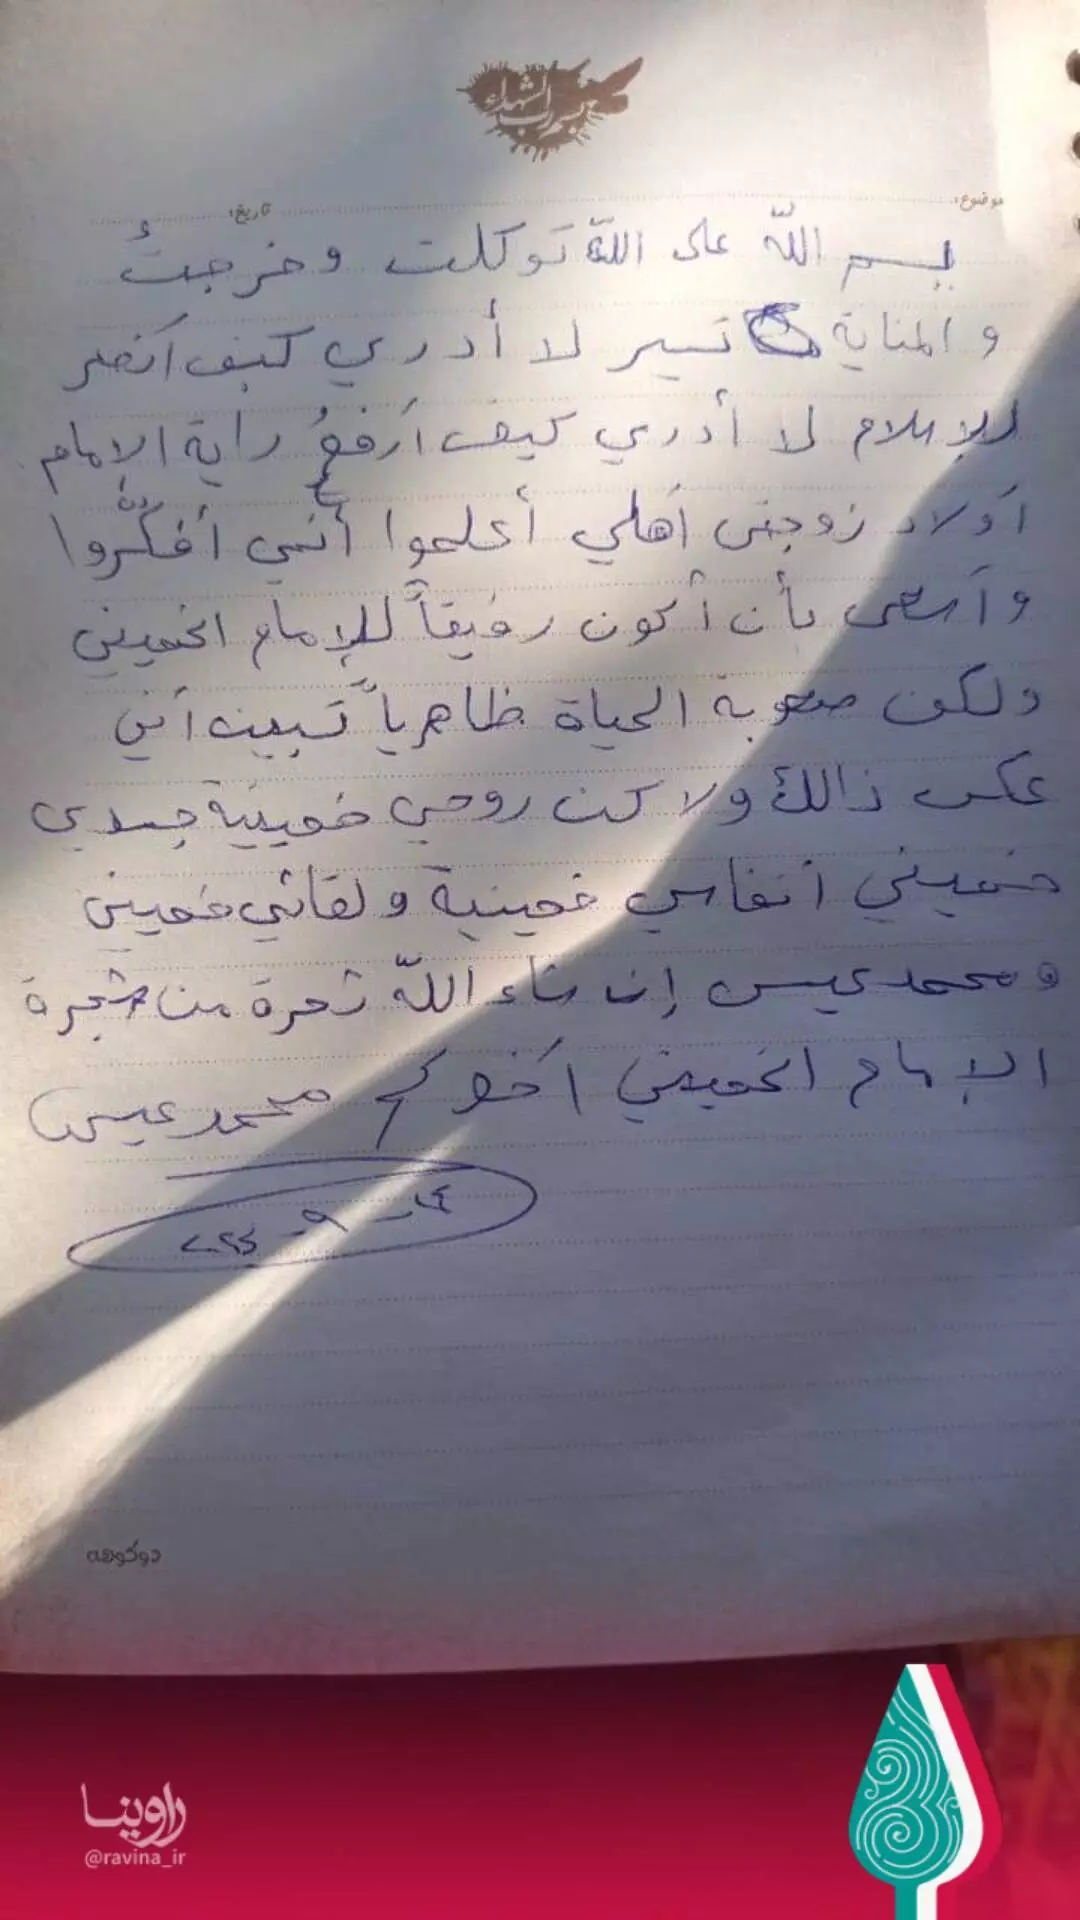 بسم رب الشهداء
موضوع: تاريخ:
بسم اللّه على اللّه توكلت وخرجتُ
والمناية تسير لا أدري كيف أنصر
للإسلام لا أدري كيف أرفعُ راية الإمام
أولاد زوجتي أهلي أعلموا أنني أفكّروا
وأسعى بأن أكون رفيقاً للإمام الخميني
ولكن صعوبة الحياة ظاهرياً تبين أني
عكس ذالك ولاكن روحي خمينية جسدي
خميني أنفاسي خمينية ولقائي خميني
ومحمد عيسى إن شاء اللّه ثمرة من شجرة
الإمام الخميني أخوكم محمد عيسى
٩ -
دوكوهه
راوینا
@ravina_ir